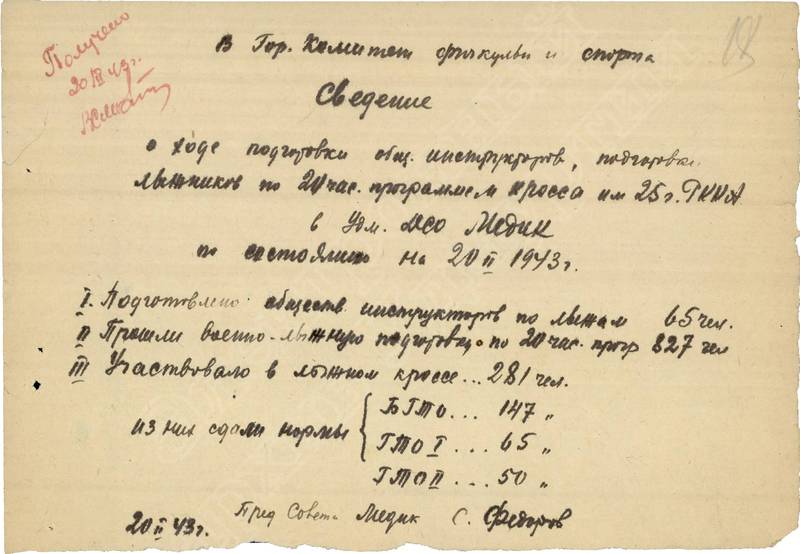 Получено
20 II 43 г.
В Гор. Комитет физкульт и спорта
Сведение
о ходе подготовки общ. инструкторов, подготовки
лыжников по 20 час. программе и кросса им 25 г. РККА
в Удм. ДСО Медик
по состоянию на 20 II 1943 г.
I. Подготовлено обществ. инструкторов по лыжам 65 чел.
II Прошли военно-лыжную подготовку по 20 час. прогр 327 чел
III Участвовало в лыжном кроссе... 281 чел.
из них сдали нормы
БГТО... 147 „
ГТО I ... 65 „
ГТО II ... 50 „
Пред Совета Медик С. Федоров
20 II 43 г.